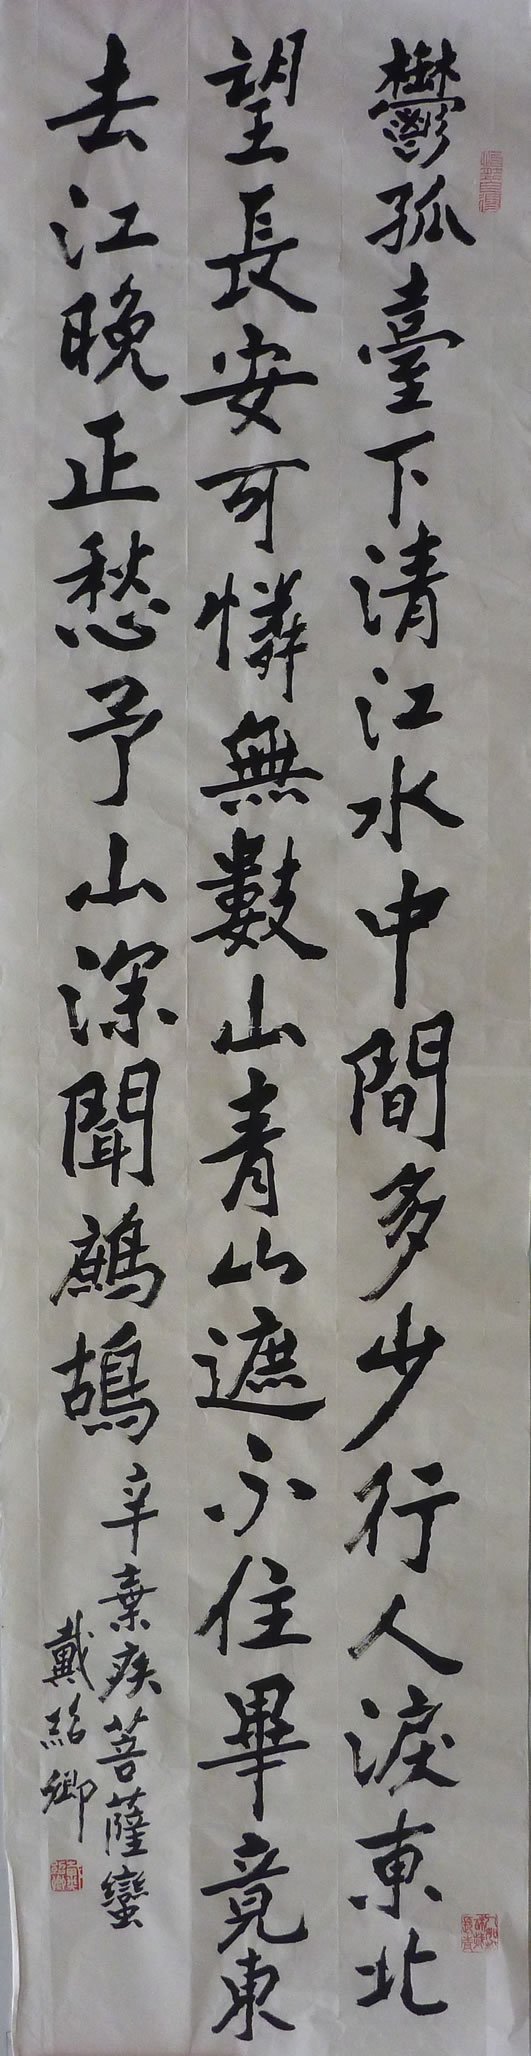 鬱孤臺下清江水中間多少行人淚東北
望長安可憐無數山青山遮不住畢竟東
去江晚正愁予山深聞鷓鴣
辛棄疾菩薩蠻
戴紹卿